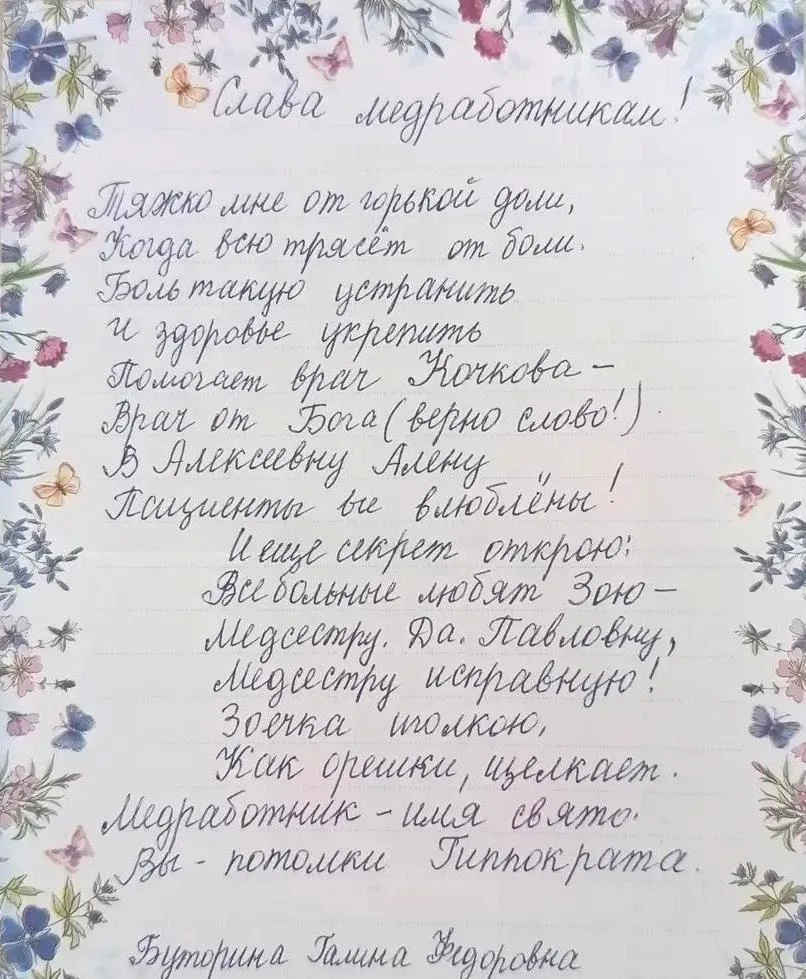 Слава медработникам!
Тяжко мне от горькой доли,
Когда всю трясёт от боли.
Боль такую устранить
и здоровье укрепить
Помогает врач Кочкова –
Врач от Бога (верно слово!).
В Алексеевну Алену
Пациенты все влюблёны!
И еще секрет открою:
Все больные любят Зою –
Медсестру. Да. Павловну,
Медсестру исправную!
Зоечка иголкою,
Как орешки, щелкает.
Медработник – имя свято.
Вы – потомки Гиппократа.
Буторина Галина Федоровна